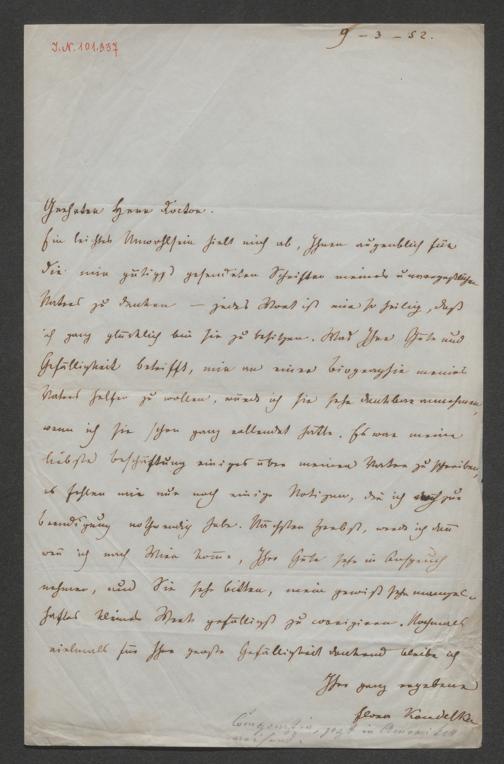 J.N. 101.337
9 – 3 – 52.
Geehrter Herr Doctor.
Ein leichtes Unwohlsein hielt mich ab, Ihnen augenblick für
die mir gütigst gesendeten Schriften meines unvergeßlichen
Vaters zu danken — jedes Wort ist mir so heilig, daß
ich ganz glücklich bin sie zu besitzen. Was Ihre Güte und
Gefälligkeit betrifft, mir an einer Biographie meines
Vaters helfen zu wollen, würde ich sie sehr dankbar annehmen,
wenn ich sie schon ganz vollendet hätte. Es war meine
liebste Beschäftung einiges über meinen Vater zu schreiben,
es fehlen mir nur noch einige Notizen, die ich zur
Beendigung nothwendig habe. Nächsten Herbst, werde ich dann
wen ich nach Wien komme, Ihre Güte sehr in Anspruch
nehmen, und Sie sehr bitten, mein gewiß sehr mangel-
haftes kleines Werk gefälligst zu corrigieren. Nochmals
vielmals für Ihre große Gefälligkeit dankend bleibe ich
Ihre ganz ergebene
Flora Koudelka
jetzt in Amerika